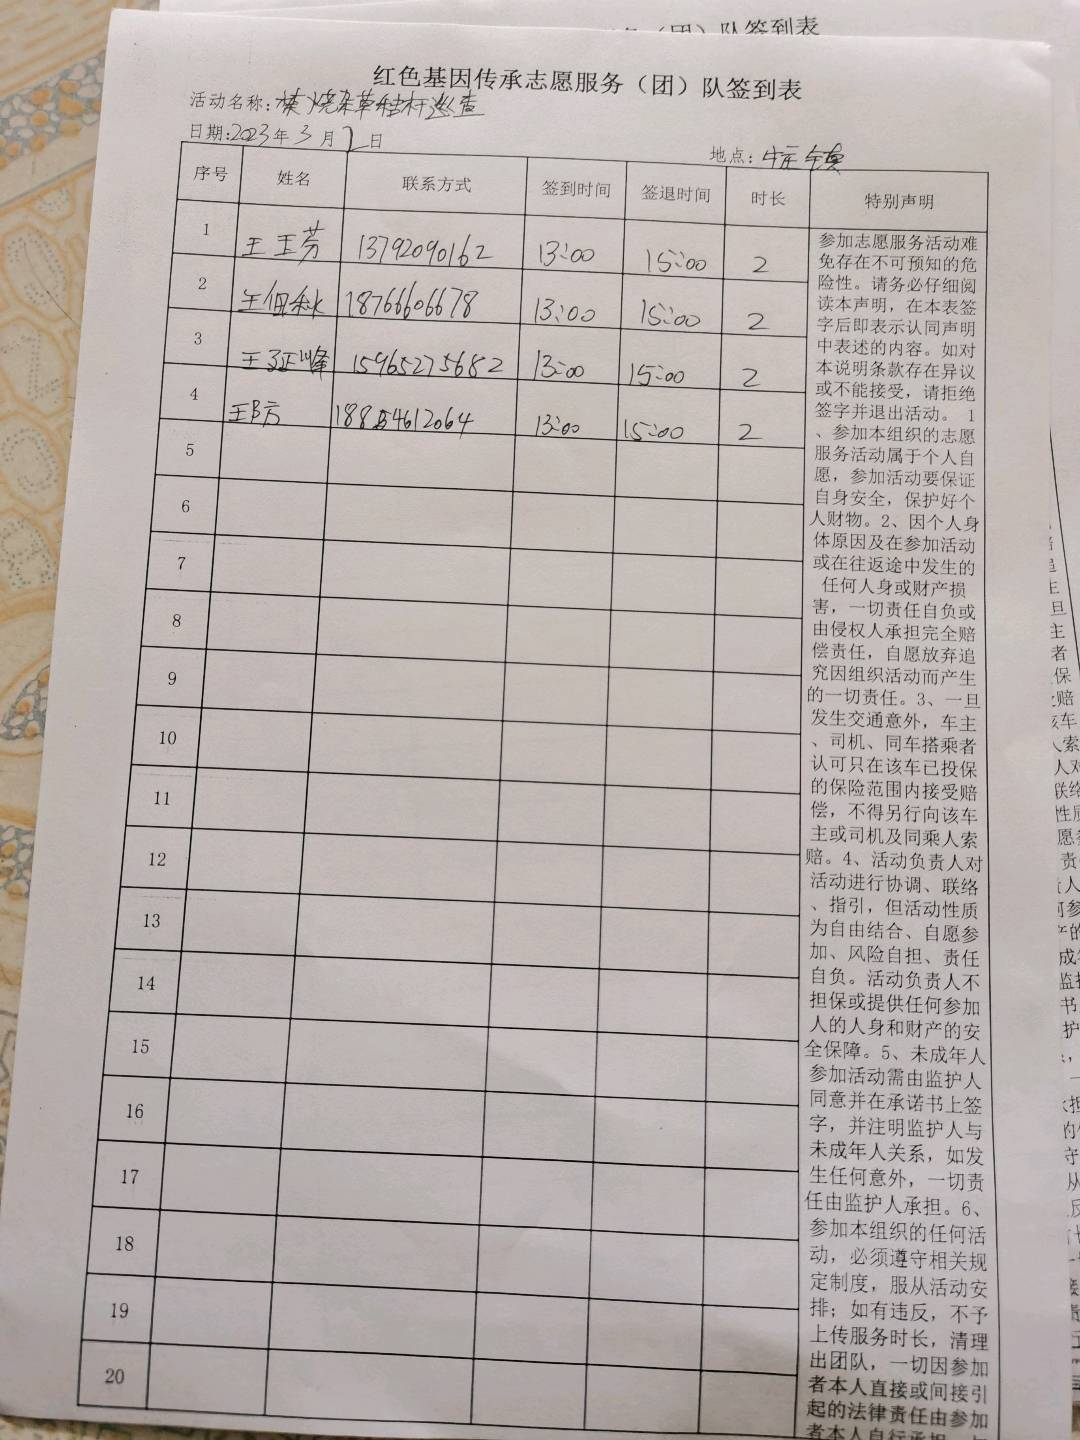 红色基因传承志愿服务（团）队签到表
活动名称：禁烧杂草秸秆巡查
日期：2023年3月2日
地点：镇
序号 姓名 联系方式 签到时间 签退时间 时长 特别声明
1 王玉芳 13792090162 13:00 15:00 2
2 王佃 18766606678 13:00 15:00 2
3 王延峰 15965275682 13:00 15:00 2
4 王防 18854612064 13:00 15:00 2
5
6
7
8
9
10
11
12
13
14
15
16
17
18
19
20
参加志愿服务活动难
免存在不可预知的危
险性。请务必仔细阅
读本声明，在本表签
字后即表示认同声明
中表述的内容。如对
本说明条款存在异议
或不能接受，请拒绝
签字并退出活动。 1
、参加本组织的志愿
服务活动属于个人自
愿，参加活动要保证
自身安全，保护好个
人财物。2、因个人身
体原因及在参加活动
或在往返途中发生的
任何人身或财产损
害，一切责任自负或
由侵权人承担完全赔
偿责任，自愿放弃追
究因组织活动而产生
的一切责任。3、一旦
发生交通意外，车主
、司机、同车搭乘者
认可只在该车已投保
的保险范围内接受赔
偿，不得另行向该车
主或司机及同乘人索
赔。4、活动负责人对
活动进行协调、联络
、指引，但活动性质
为自由结合、自愿参
加、风险自担、责任
自负。活动负责人不
担保或提供任何参加
人的人身和财产的安
全保障。5、未成年人
参加活动需由监护人
同意并在承诺书上签
字，并注明监护人与
未成年人关系，如发
生任何意外，一切责
任由监护人承担。6、
参加本组织的任何活
动，必须遵守相关规
定制度，服从活动安
排；如有违反，不予
上传服务时长，清理
出团队，一切因参加
者本人直接或间接引
起的法律责任由参加
者本人自行承担